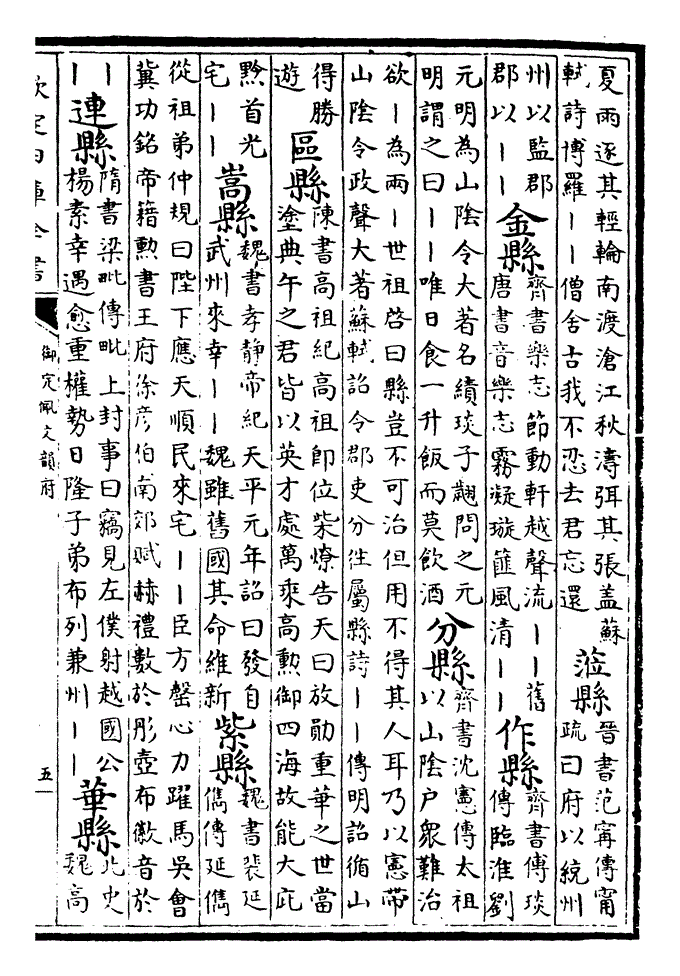 夏雨逐其輕輪南渡滄江秋濤弭其張盖蘇
軾詩博羅丨丨僧舍古我不忍去君忘還
蒞縣
晉書范甯傳甯
疏曰府以統州
州以監郡
郡以丨丨
金縣
齊書樂志節動軒越聲流丨丨舊
唐書音樂志霧凝璇篚風清丨丨
作縣
齊書傅琰
傳臨淮劉
元明為山陰令大著名績琰子翽問之元
明謂之曰丨丨唯日食一升飯而莫飲酒
分縣
齊書沈憲傳太祖
以山陰户衆難治
欲丨為兩丨世祖啓曰縣豈不可治但用不得其人耳乃以憲帶
山陰令政聲大著蘇軾詔令郡吏分往屬縣詩丨丨傳明詔循山
得勝
遊
區縣
陳書高祖紀高祖即位柴燎告天曰放勛重華之世當
塗典午之君皆以英才處萬乘高勲御四海故能大庇
黔首光
宅丨丨
嵩縣
魏書孝静帝紀天平元年詔曰發自
武州來幸丨丨魏雖舊國其命維新
紫縣
魏書裴延
儁傳延儁
從祖弟仲規曰陛下應天順民來宅丨丨臣方罄心力躍馬吳會
冀功銘帝籍勲書王府徐彦伯南郊賦赫禮數於彤壺布徽音於
丨
丨
連縣
隋書梁毗傳毗上封事曰竊見左僕射越國公
楊素幸遇愈重權勢日隆子弟布列兼州丨丨
華縣
北史
魏高
欽定四庫全書
御定佩文韻府
五